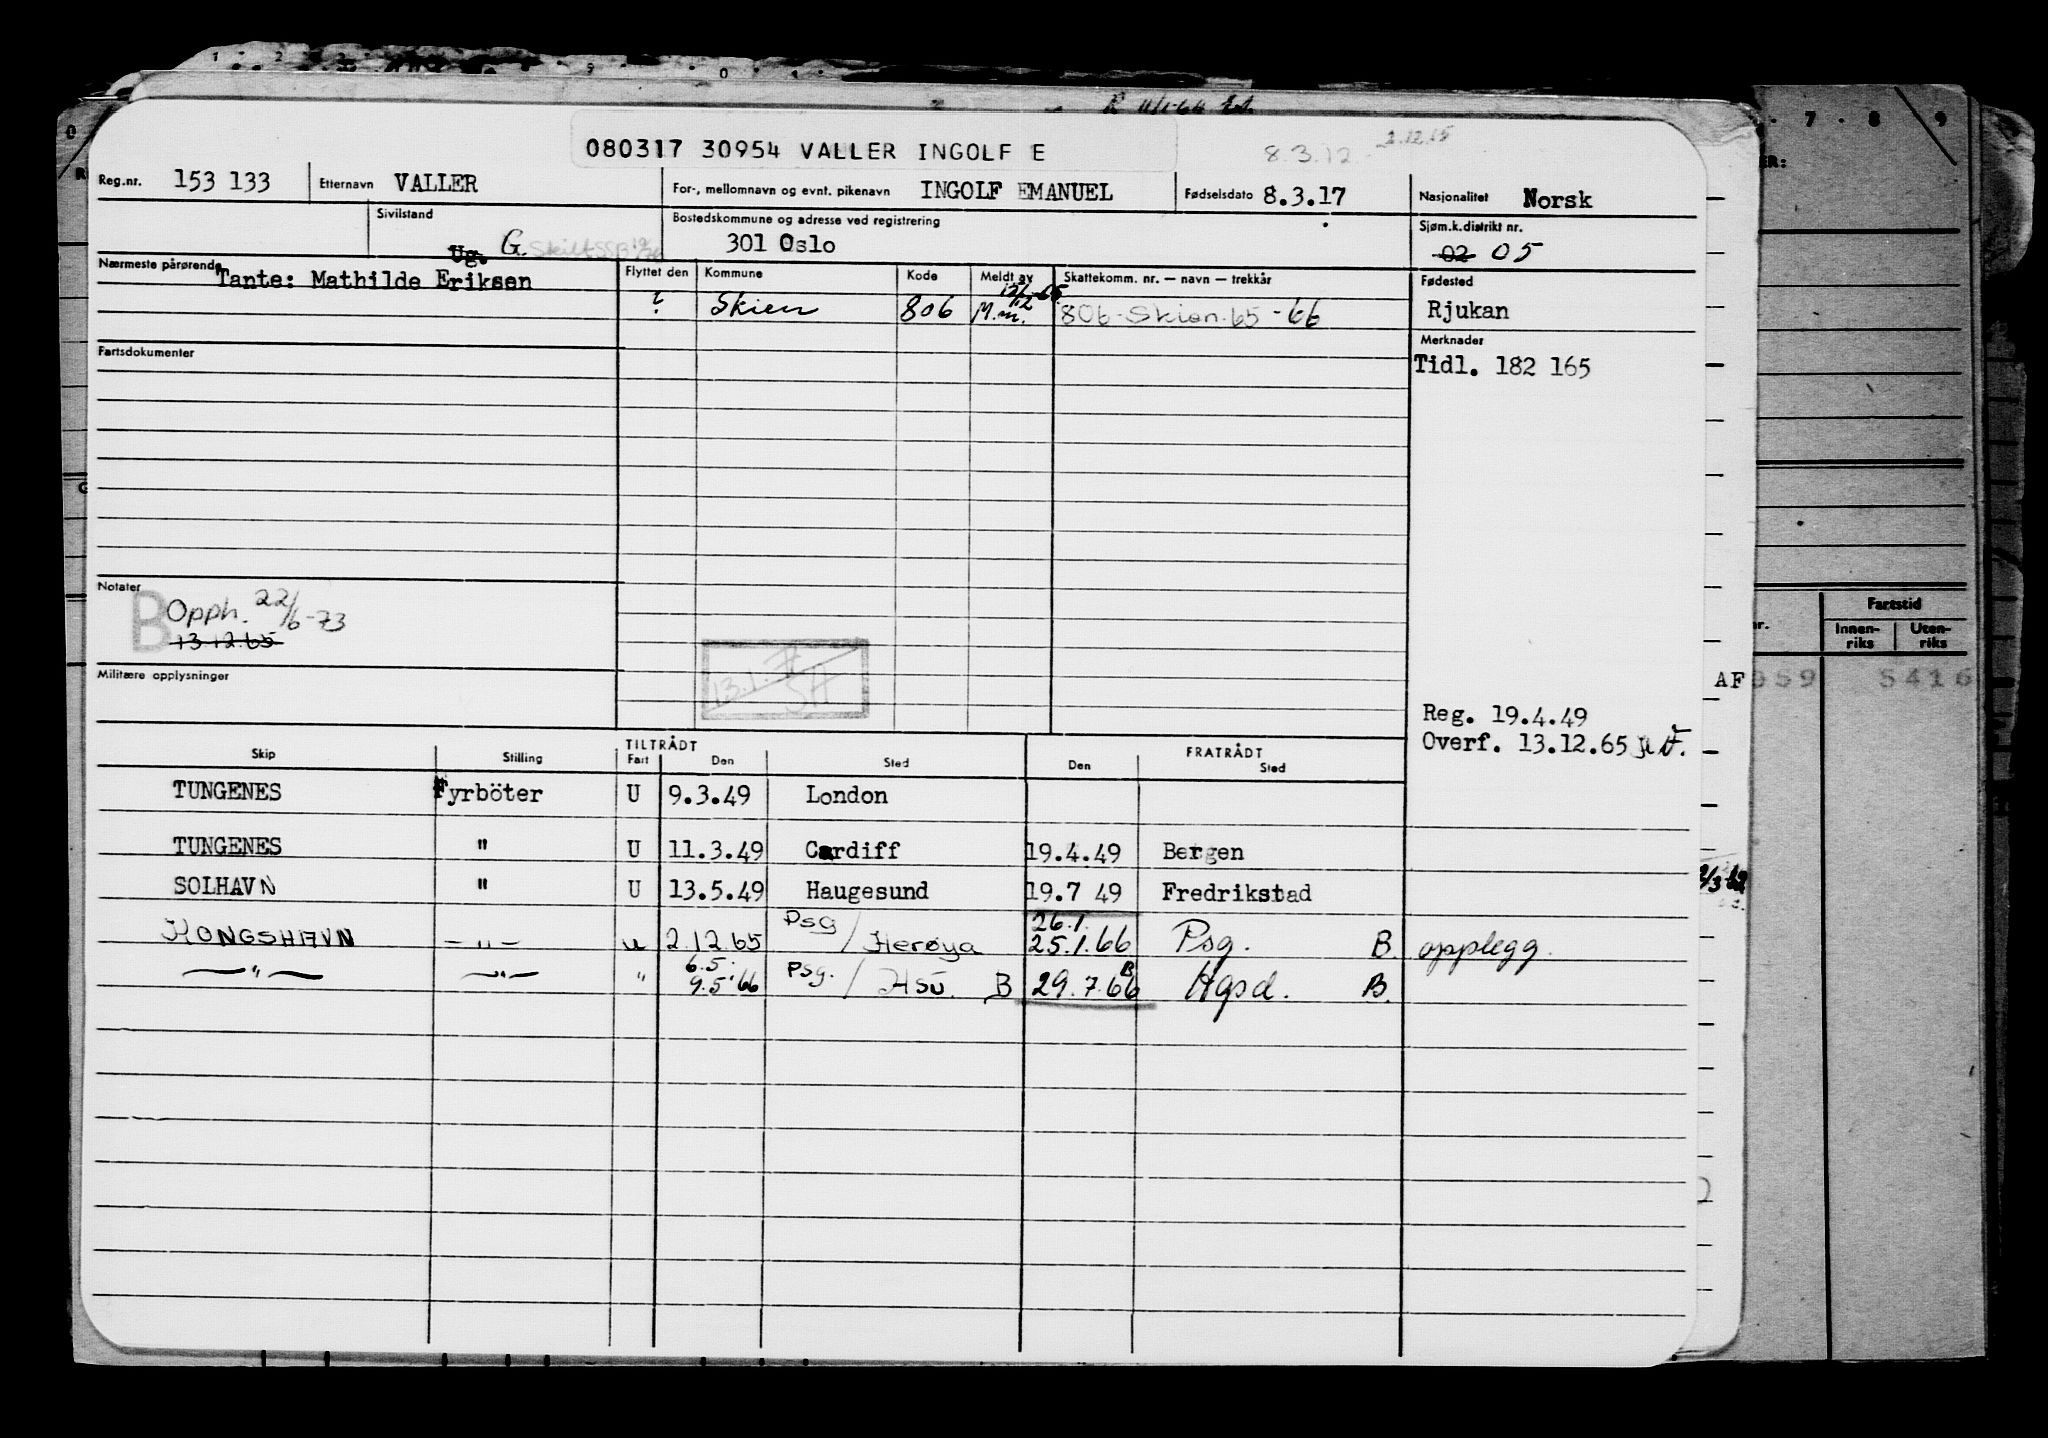 080317 30954 VALLER INGOLF E
8.3.12 2.12.65
Reg.nr. 153 133 Etternavn VALLER For-, mellomnavn og evnt. pikenavn INGOLF EMANUEL Fødselsdato 8.3.17 Nasjonalitet Norsk
Sivilstand Ug. G. Bostedskommune og adresse ved registrering 301 Oslo Sjøm.k.distrikt nr. 02 05
Nærmeste pårørende Tante: Mathilde Eriksen
Flyttet den Kommune Kode Meldt av Skattekomm. nr. — navn — trekkår
? Skien 806 M.m. 806-Skien-65-66
Fødested
Rjukan
Merknader
Tidl. 182 165
Fartsdokumenter
Notater
B Opph. 22/6-73
13.12.65
Militære opplysninger
Reg. 19.4.49
Overf. 13.12.65
TILTRÅDT FRATRÅDT
Skip Stilling Fart Den Sted Den Sted
TUNGENES Fyrböter U 9.3.49 London
TUNGENES " U 11.3.49 Cardiff 19.4.49 Bergen
SOLHAVN " U 13.5.49 Haugesund 19.7 49 Fredrikstad
KONGSHAVN — " — u 2.12.65 Psg/Herøya 26.1. 25.1.66 Psg. B opplegg.
— " — — " — " 6.5. 9.5.66 Psg./Hsu. B 29.7.66 B Hgsd. B.
7 8 9
Fartstid
Innen-riks Uten-riks
AF 059 5416